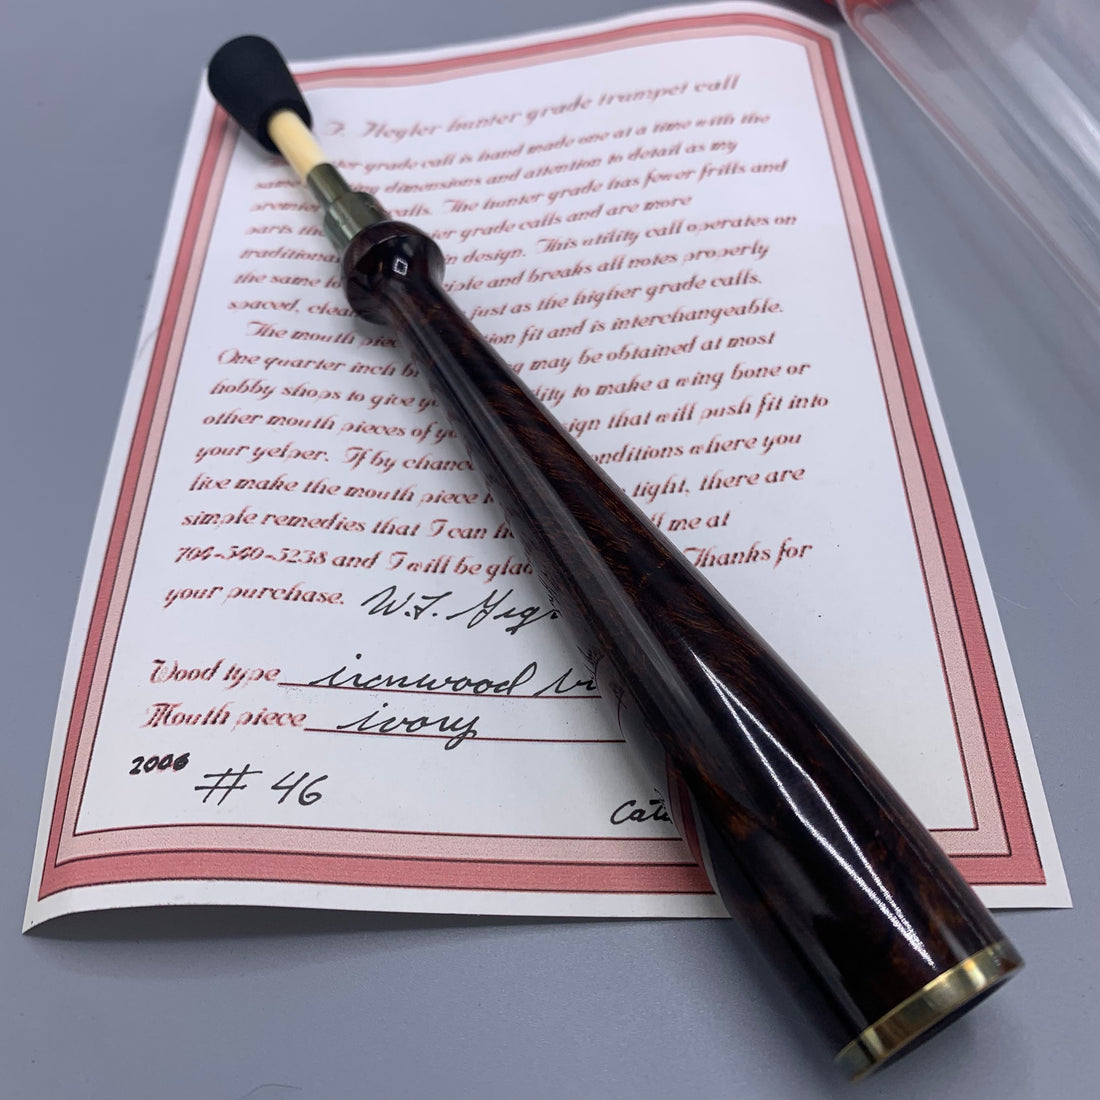 Hegler hunter grade trumpet call
grade call is hand made one at a time with the
same dimensions and attention to detail as my
premier calls. The hunter grade has fewer frills and
parts grade calls and are more
traditional design. This utility call operates on
the same and breaks all notes properly
spaced, just as the higher grade calls.
The mouth fit and is interchangeable.
One quarter inch may be obtained at most
hobby shops to give to make a wing bone or
other mouth pieces of that will push fit into
your yelper. If by chance conditions where you
live make the mouth piece tight, there are
simple remedies that I can me at
704-540-5238 and I will be Thanks for
your purchase. W.F.
Wood type ironwood
Mouth piece ivory
2006
# 46